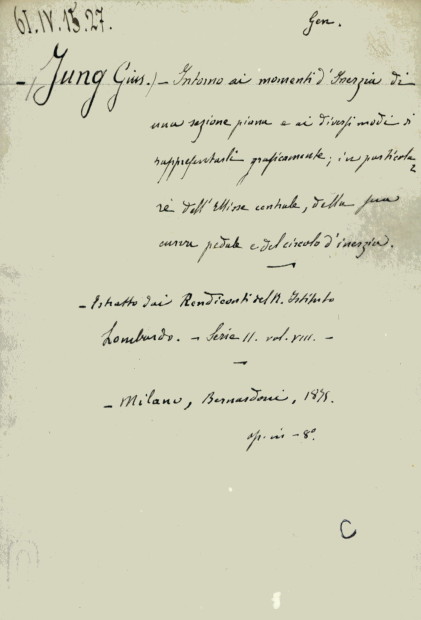 61.IV.15.27.
Gen.
-(Jung Gius.) - Intorno ai momenti d'Inerzia di
una sezione piana e ai diversi modi di
rappresentarli graficamente; in particola
re dell'Ellisse centrale, della sua
curva pedale e del circolo d'inerzia.
- Estratto dai Rendiconti del R. Istituto
Lombardo. - Serie II. vol. VIII. -
- Milano, Bernardoni, 1875.
op. in - 8°.
C